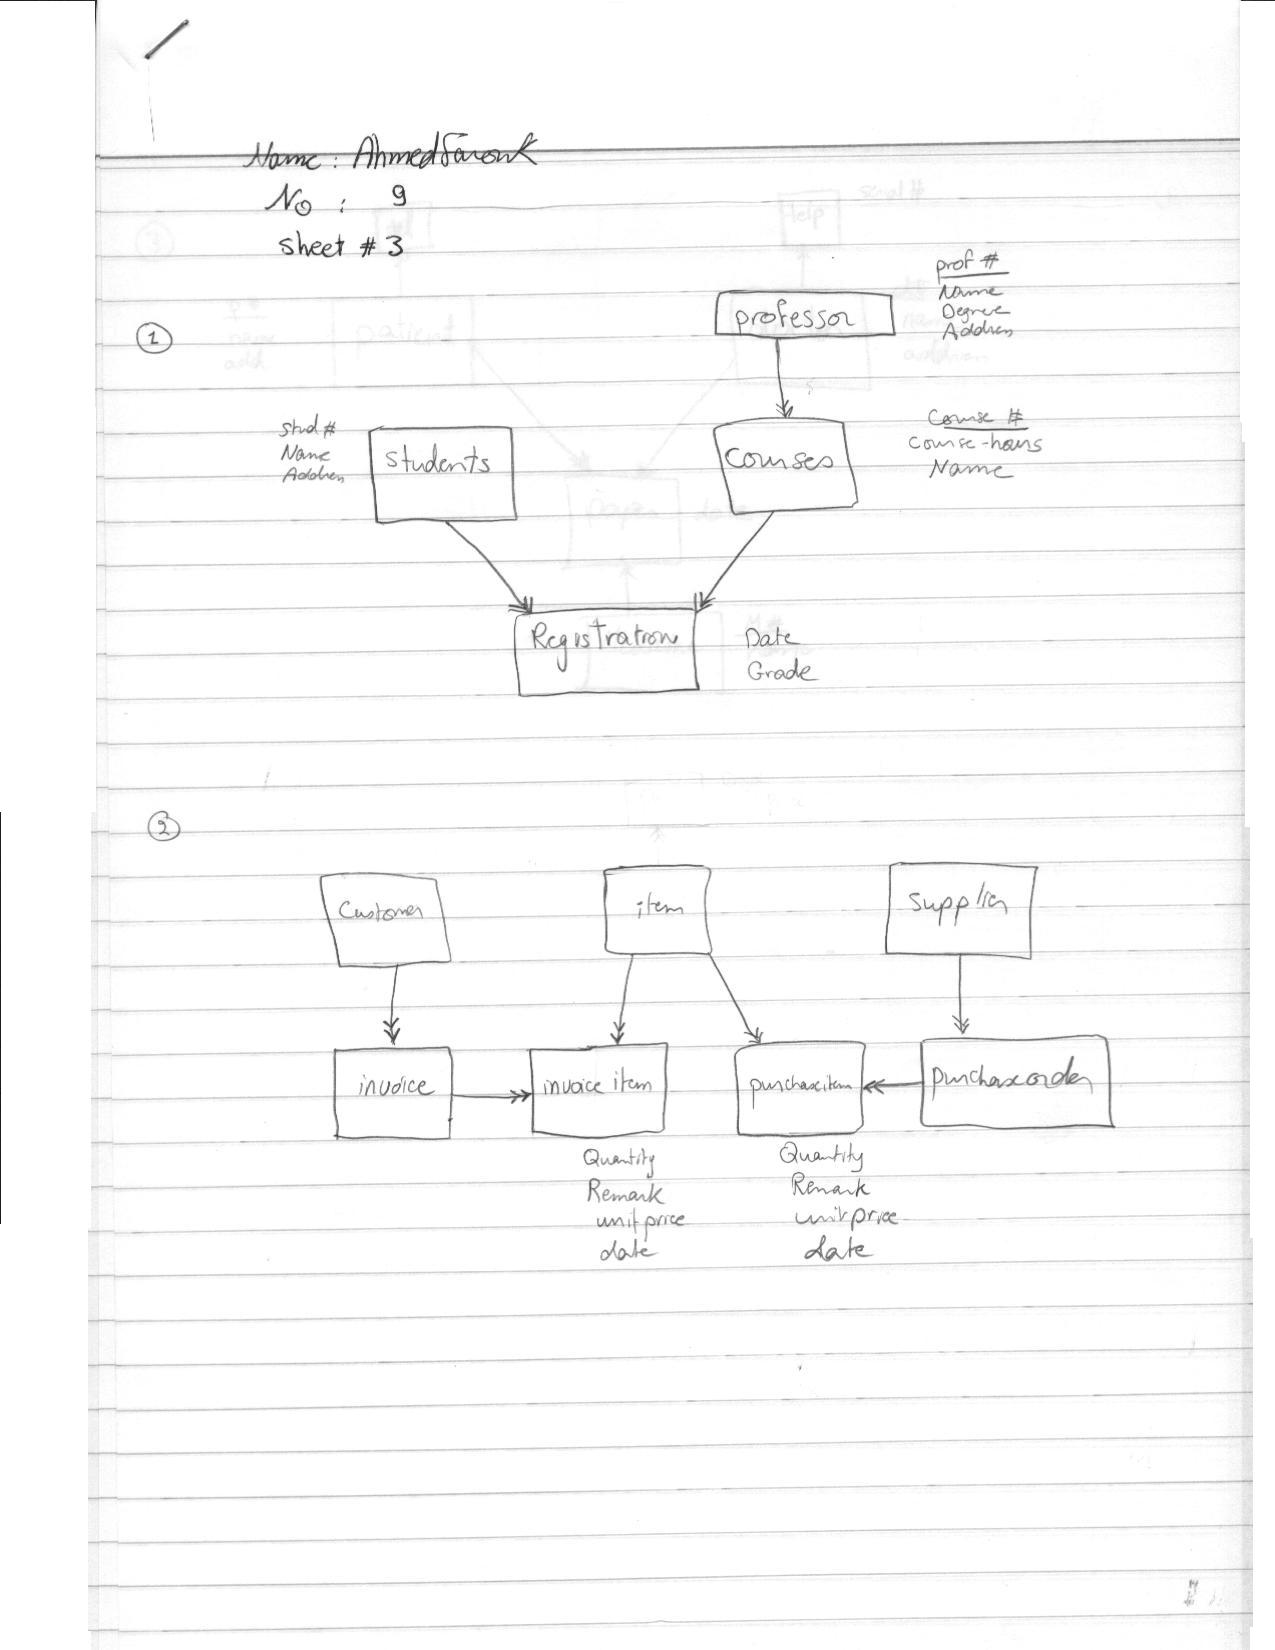 Name : Ahmed Farouk
No : 9
Sheet # 3
1
prof #
Name
Degree
Address
professor
Stud #
Name
Address
Students
Courses
Course #
Course-hours
Name
Registration
Date
Grade
2
Customer
item
Supplier
invoice
invoice item
purchase item
purchase order
Quantity
Remark
unit price
date
Quantity
Remark
unit price
date